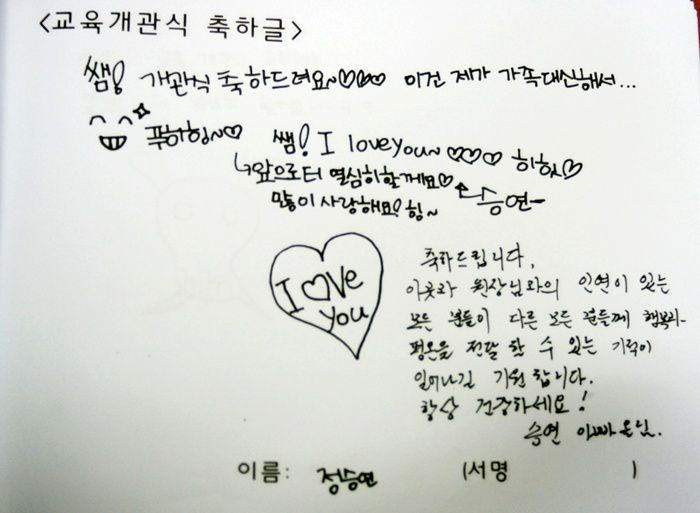 <교육개관식 축하글>
쌤! 개관식 축하드려요~♡♡♡ 이건 제가 가족대신해서...
푸하힝~♡ 쌤! I love you~ ♡♡♡ 히힛♡
↳앞으로더 열심히할께요♡
많이 사랑해요! 힝~ 승연-
I ♡ve you
축하드립니다,
이곳과 원장님과의 인연이 있는
모든 분들이 다른 모든 분들께 행복과
평온을 전달 할 수 있는 기적이
일어나길 기원 합니다.
항상 건강하세요!
승연 아빠
이름: 정승연 (서명 )